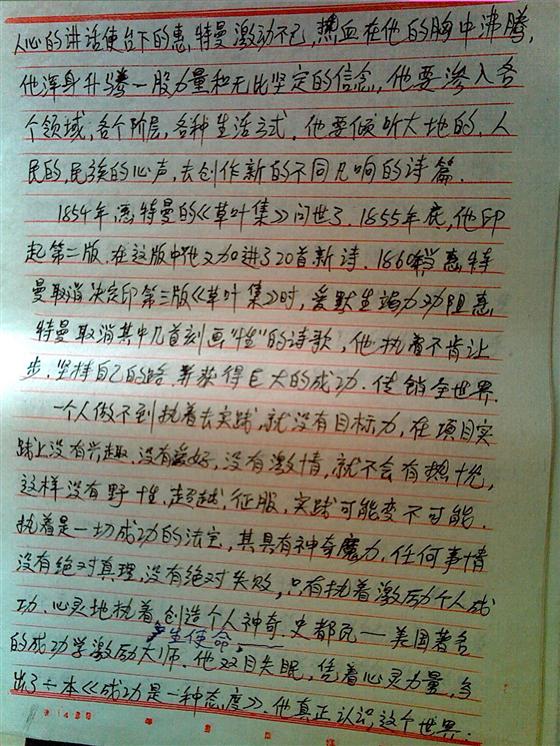 人心的讲话使台下的惠特曼激动不已，热血在他的胸中沸腾，
他浑身升腾一股力量和无比坚定的信念，他要渗入各
个领域，各个阶层，各种生活方式，他要倾听大地的，人
民的，民族的心声，去创作新的不同凡响的诗篇．
1854年，惠特曼的《草叶集》问世了．1855年底，他印
起第二版．在这版中他又加进了20首新诗．1860当惠特
曼取消决定印第三版《草叶集》时，爱默生竭力劝阻惠
特曼取消其中几首刻画"性"的诗歌，他执着不肯让
步．坚持自己的路 并获得巨大的成功．传销全世界．
一个人做不到执着去实践，就没有目标力，在项目实
践上没有兴趣，没有爱好，没有激情，就不会有热忱，
这样没有野性．超越，征服，实践可能变不可能．
执着是一切成功的法宝，其具有神奇魔力．任何事情
没有绝对真理，没有绝对失败，只有执着激励个人成
功．心灵地执着 创造个人神奇．史都瓦一美国著名
生使命，
的成功学激励大师．他双目失眠，凭着心灵力量，写
出了一本《成功是一种态度》．他真正认识这个世界．